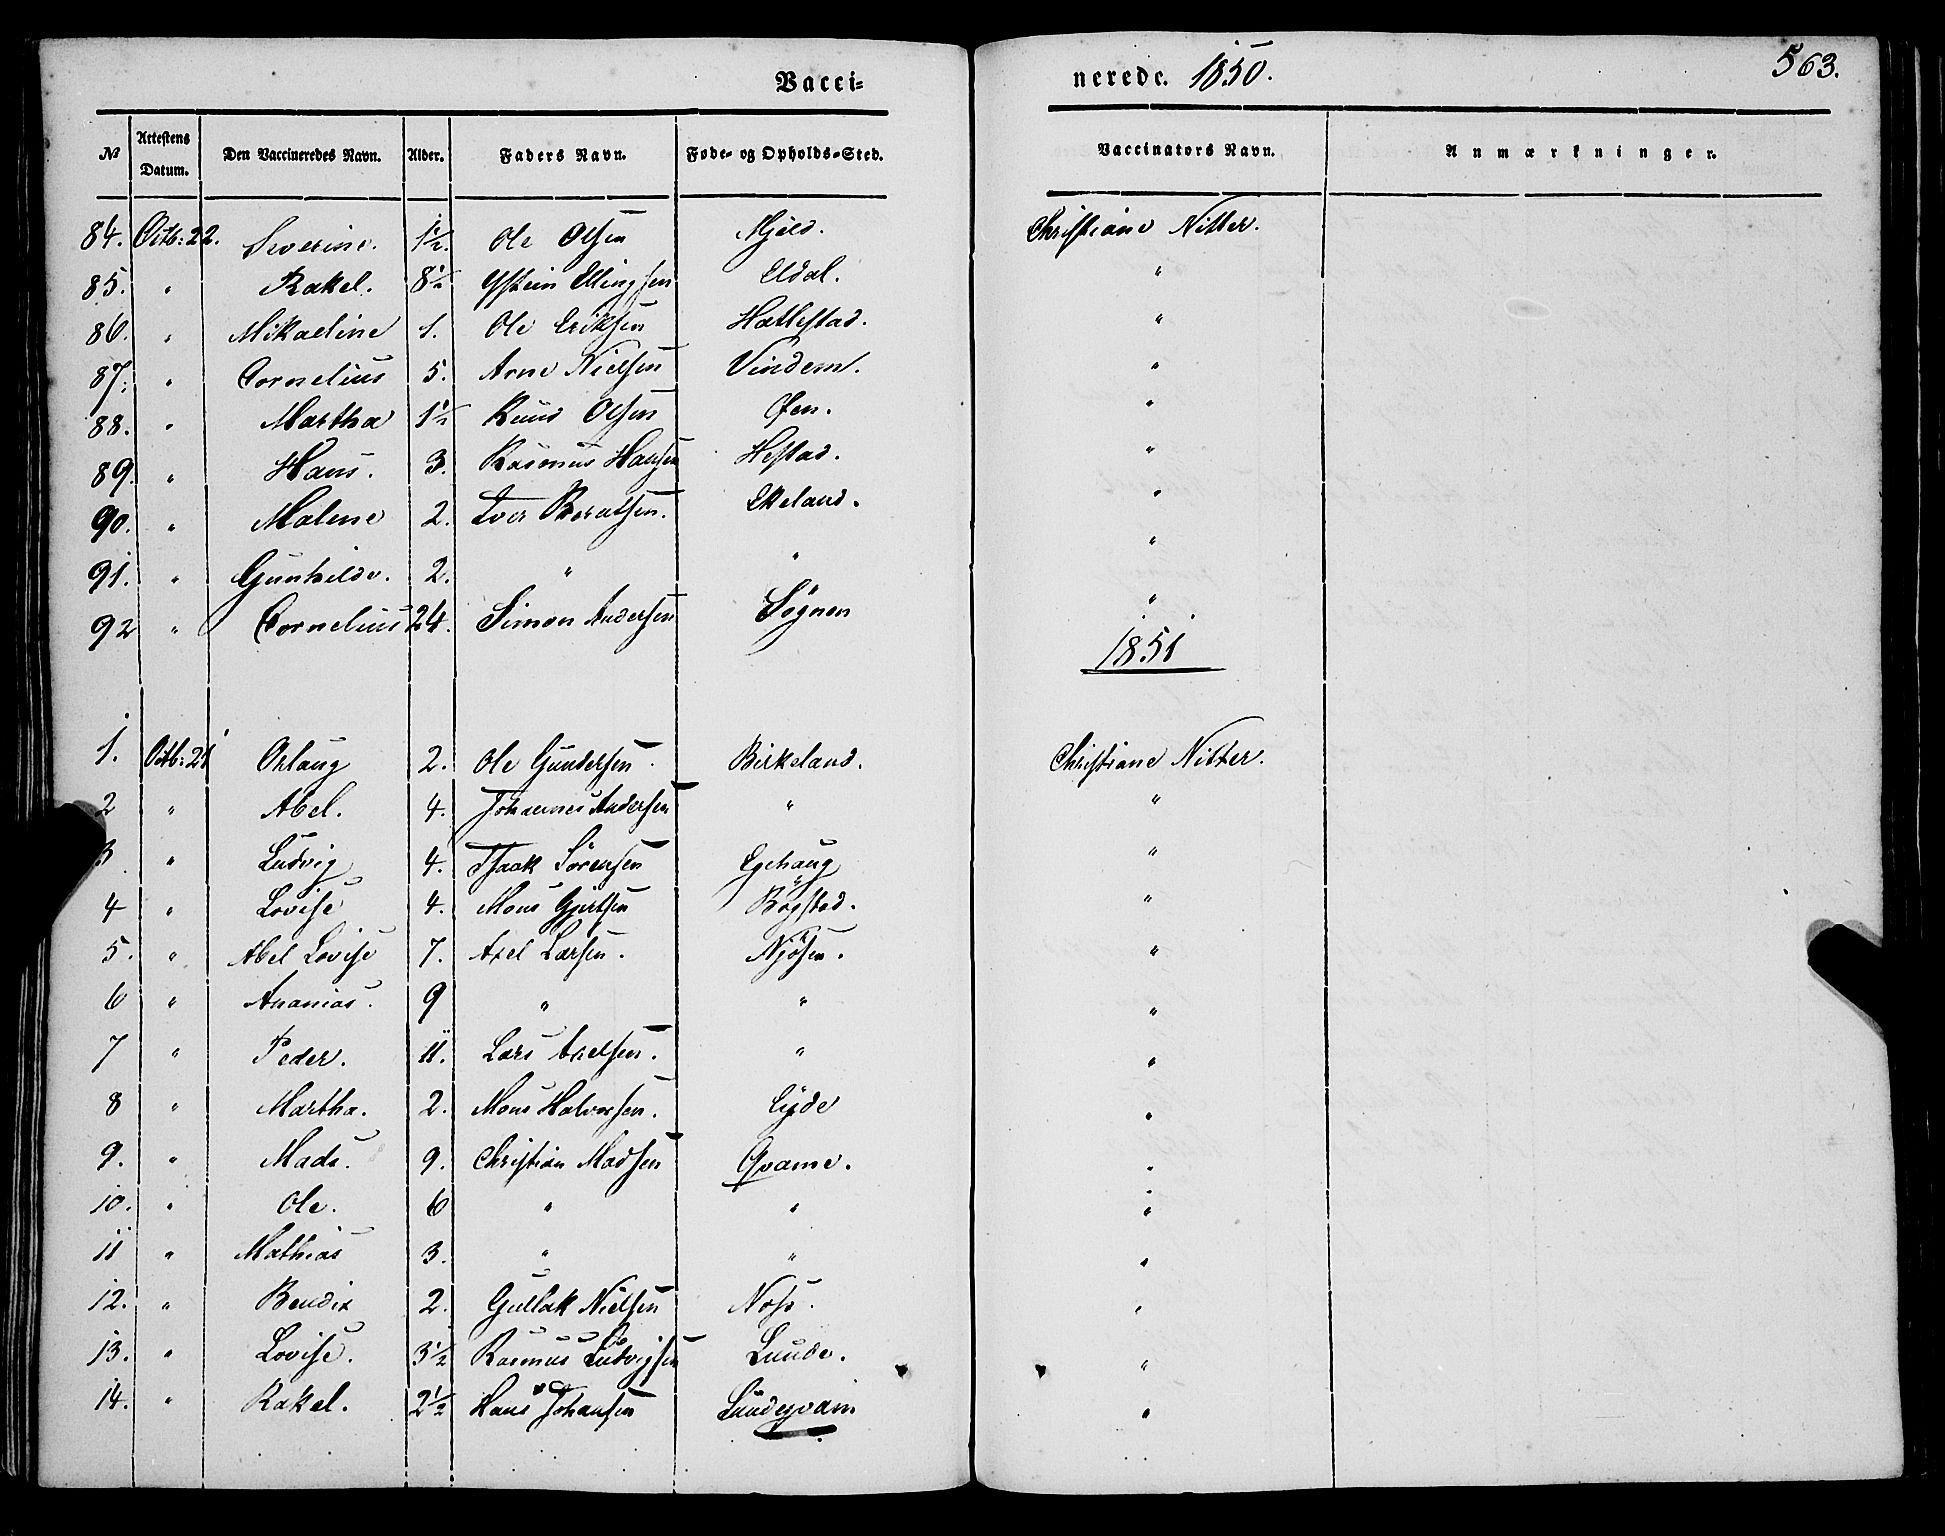 Vacci-
nerede. 1850.
563.
№ Attestens Datum. Den Vaccineredes Navn. Alder. Faders Navn. Føde- og Opholds-Sted. Vaccinators Navn. Anmærkninger.
84. Octb: 22. Severine. 1½. Ole Olsen Mjeld. Christiane Nitter.
85. " Rakel. 8½ Ystein Ellingsen Eldal. "
86. " Mikaeline 1. Ole Eriksen Hatlestad. "
87. " Cornelius 5. Arne Nielsen Vindem. "
88. " Martha 1½ Knud Olsen Øen. "
89. " Hans. 3. Rasmus Hansen Hestad. "
90. " Malene 2. Iver Berentsen. Ekeland. "
91. " Gunhilde. 2. " " "
92 " Cornelius 24. Simon Andersen Sögnen "
1851
1. Octb: 21 Orlaug 2. Ole Gundersen. Birkeland. Christiane Nitter.
2 " Abel. 4. Johannes Andersen " "
3 " Ludvig 4. Isaak Sörensen Egehaug "
4 " Lovise 4. Mons Gjertsen Bögstad. "
5. " Abel Lovise 7. Axel Larsen. Njösen. "
6 " Ananias. 9 " " "
7 " Peder. 11. Lars Axelsen. " "
8 " Martha. 2. Mons Halvorsen. Eyde "
9. " Mads. 9. Christian Madsen Qvame. "
10. " Ole. 6 " " "
11 " Mathias 3. " " "
12. " Bendix 2. Gullak Nielsen Noss. "
13. " Lovise. 3½ Rasmus Ludvigsen Lunde. "
14. " Rakel. 2½ Hans Johansen Lundeqvam "